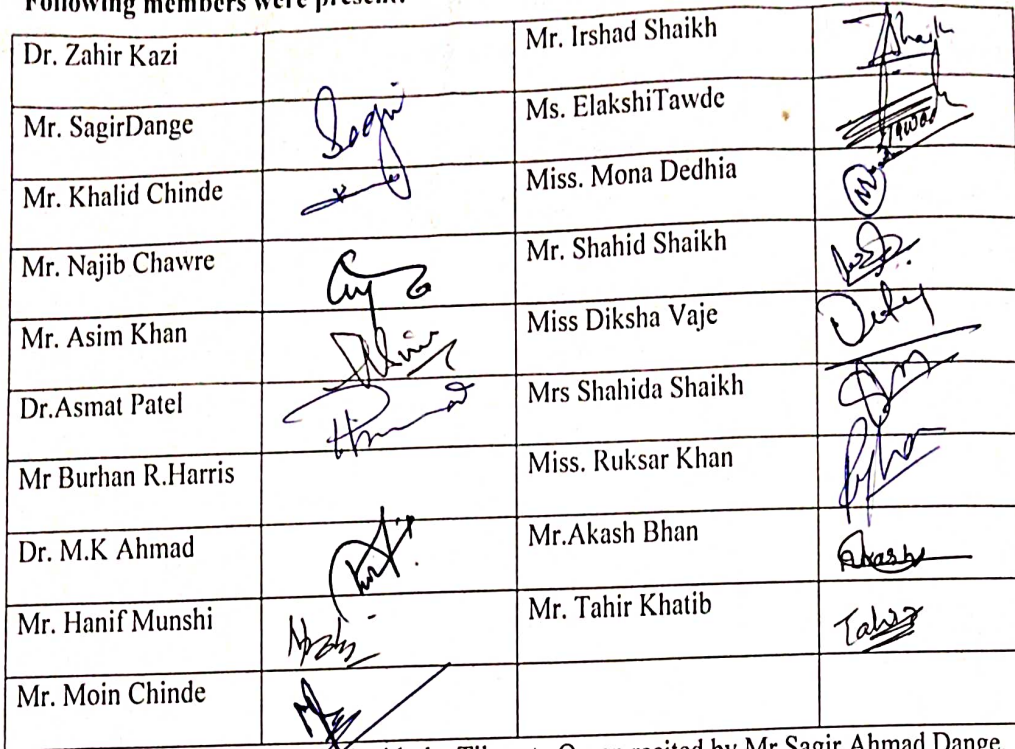 Following members were present:
Dr. Zahir Kazi
Mr. Irshad Shaikh
Shaikh
Mr. SagirDange
Sagir
Ms. ElakshiTawde
Tawde
Mr. Khalid Chinde
Miss. Mona Dedhia
Mr. Najib Chawre
Mr. Shahid Shaikh
Mr. Asim Khan
Miss Diksha Vaje
Dr.Asmat Patel
Mrs Shahida Shaikh
Mr Burhan R.Harris
Miss. Ruksar Khan
Dr. M.K Ahmad
Mr.Akash Bhan
Akash
Mr. Hanif Munshi
Mr. Tahir Khatib
Tahir
Mr. Moin Chinde
recited by Mr Sagir Ahmad Dange